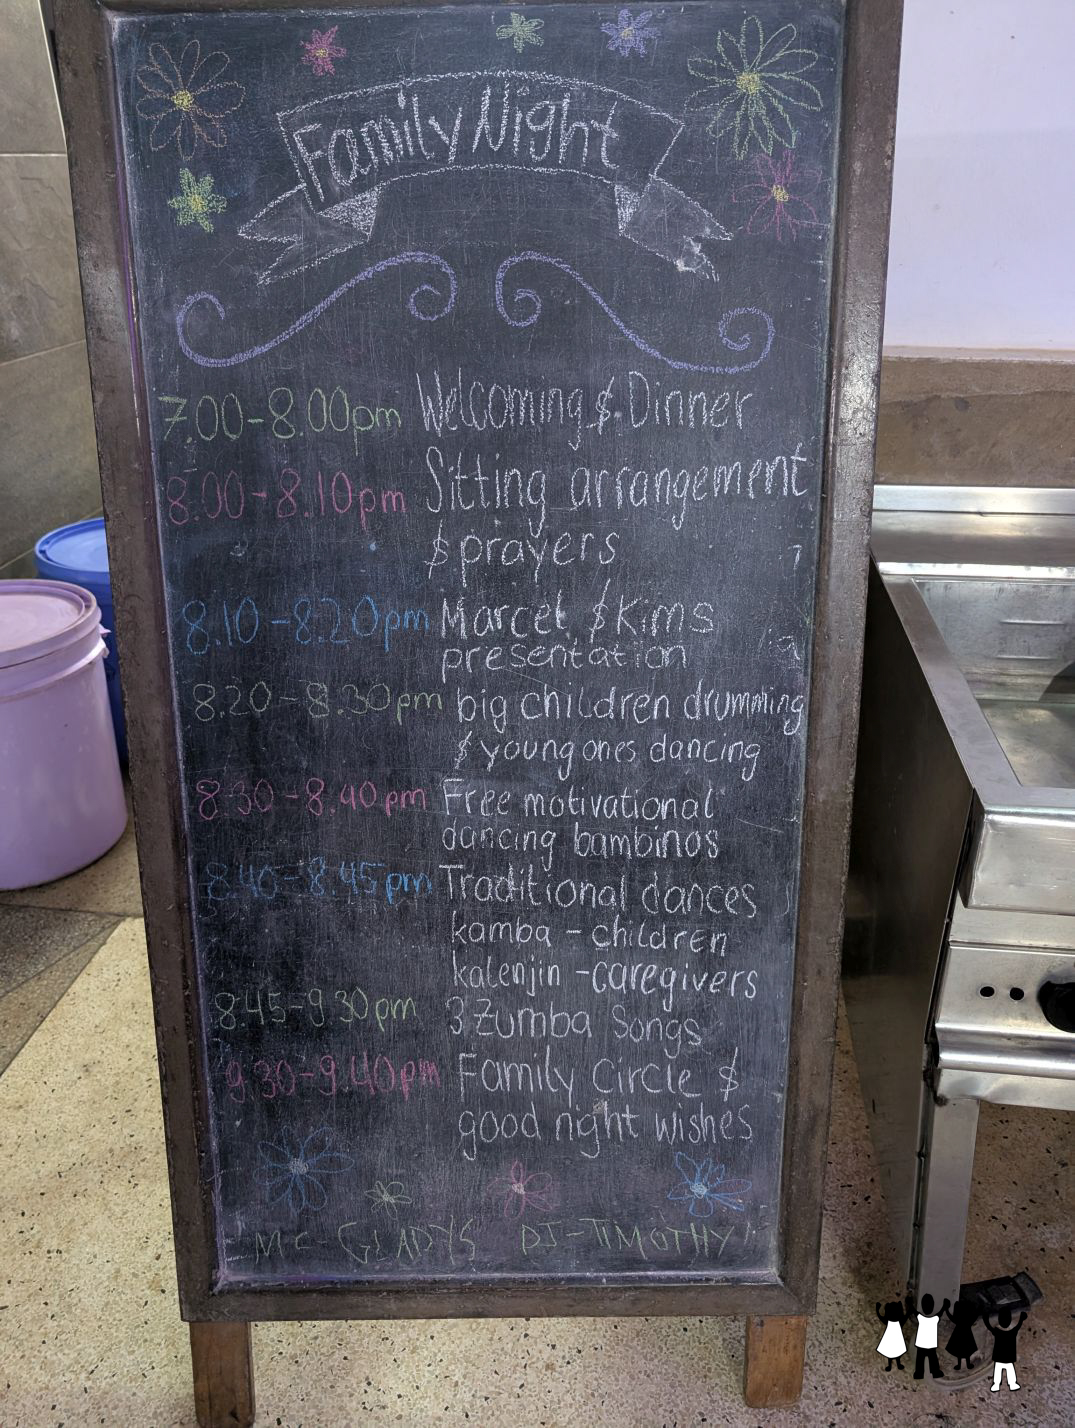 Family Night
7.00-8.00pm Welcoming & Dinner
8.00-8.10pm Sitting arrangement
& prayers
8.10-8.20pm Marcel & Kims
presentation
8.20-8.30pm big children drumming
& young ones dancing
8.30-8.40pm Free motivational
dancing bambinos
8.40-8.45pm Traditional dances
kamba - children
kalenjin - caregivers
8.45-9.30pm 3 Zumba Songs
9.30-9.40pm Family Circle &
good night wishes
MC- GLADYS DJ-TIMOTHY